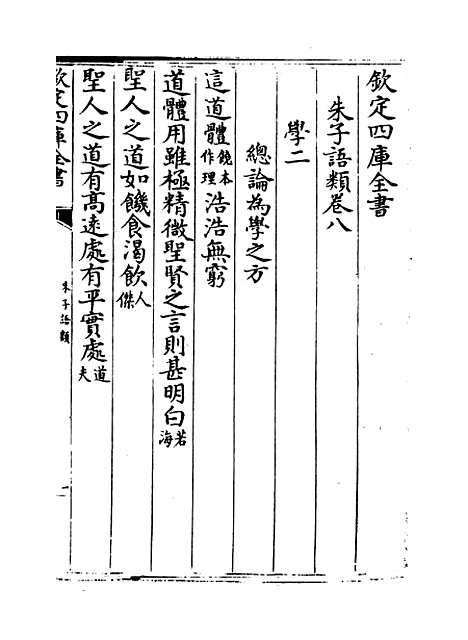 欽定四庫全書
朱子語類卷八
學二
總論為學之方
這道體饒本作理浩浩無窮
道體用雖極精微聖賢之言則甚明白若海
聖人之道如饑食渴飲人傑
聖人之道有髙遠處有平實處道夫
欽定四庫全書
朱子語類